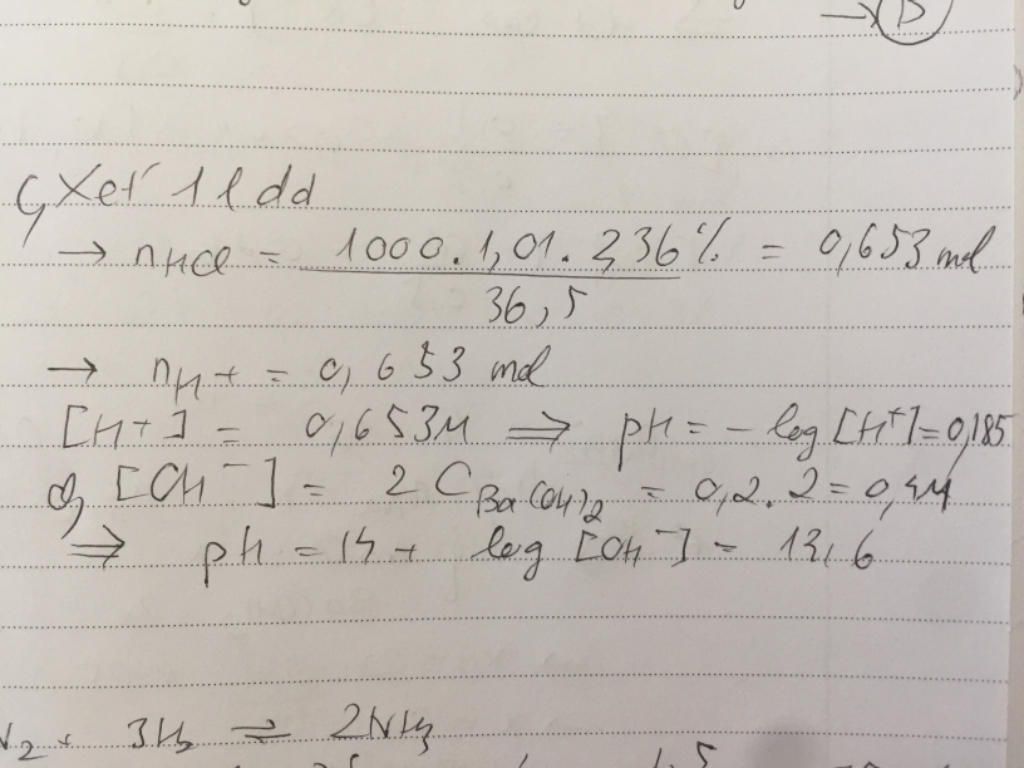 → D
c, Xét 1 l dd
→ nHCl = 1000.1,01.2,36% / 36,5 = 0,653 mol
→ nH+ = 0,653 mol
[H+] = 0,653M ⇒ pH = -log[H+]=0,185
d, [OH-] = 2 C Ba(OH)2 = 0,2.2=0,4M
⇒ pH = 14 + log [OH-] = 13,6
N2 + 3H2 ⇌ 2NH3
1,5